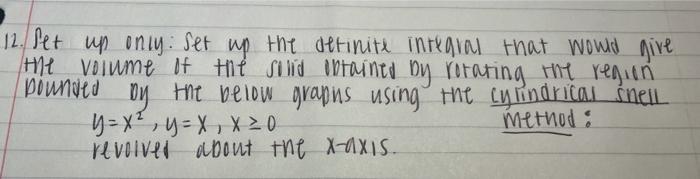 12. Set up only: Set up the definite integral that would give
the volume of the solid obtained by rotating the region
bounded by the below graphs using the cylindrical shell
y=x², y=x, x≥0 method:
revolved about the x-axis.